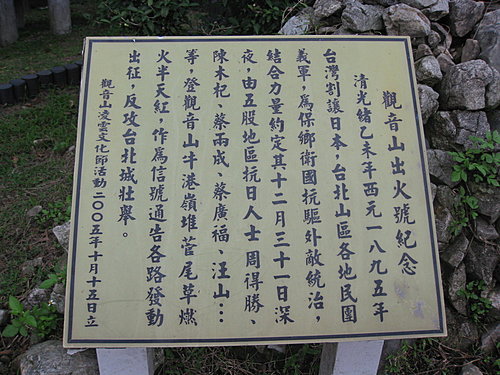 觀音山出火號紀念
清光緒乙未年西元一八九五年
台灣割讓日本，台北山區各地民團
義軍，為保鄉衛國抗驅外敵統治，
結合力量約定其十二月三十一日深
夜，由五股地區抗日人士周得勝、
陳木杞、蔡雨成、蔡廣福、汪山…
等，登觀音山牛港嶺堆菅尾草燃
火半天紅，作為信號通告各路發動
出征，反攻台北城壯舉。
觀音山凌雲文化節活動二００五年十月十五日立